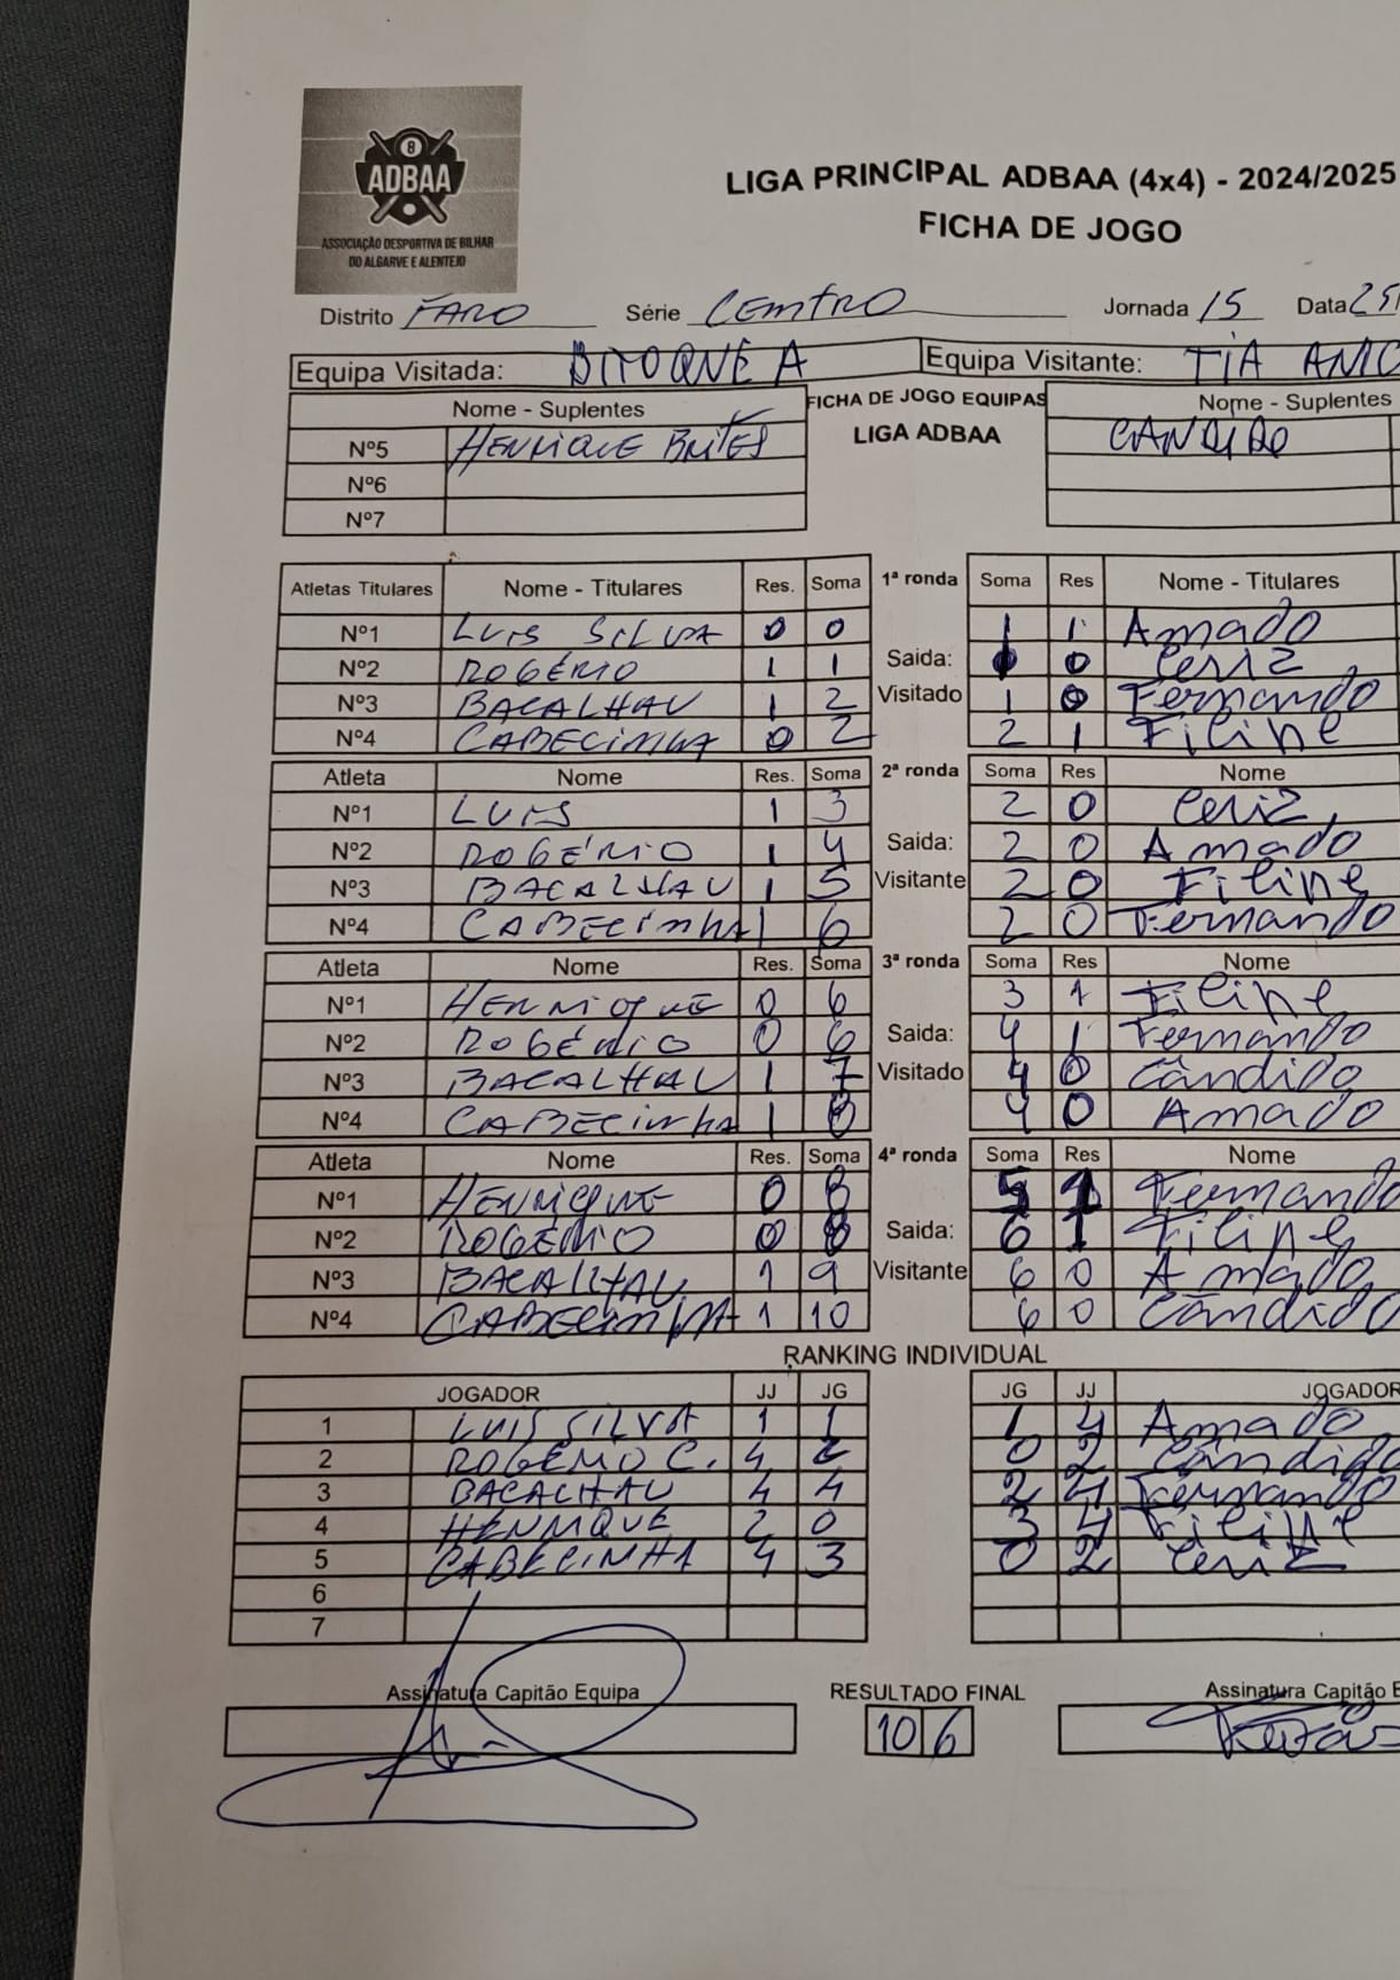 8
ADBAA
ASSOCIAÇÃO DESPORTIVA DE BILHAR
DO ALGARVE E ALENTEJO
LIGA PRINCIPAL ADBAA (4x4) - 2024/2025
FICHA DE JOGO
Distrito FARO Série CENTRO Jornada 15 Data 25
Equipa Visitada: BITOQUE A Equipa Visitante: TIA ANIC
Nome - Suplentes FICHA DE JOGO EQUIPAS Nome - Suplentes
Nº5 HENRIQUE BRITES LIGA ADBAA CANDIDO
Nº6
Nº7
Atletas Titulares Nome - Titulares Res. Soma 1ª ronda Soma Res Nome - Titulares
Nº1 LUIS SILVA 0 0 1 1 Amado
Nº2 ROGÉRIO 1 1 Saida: 0
Nº3 BACALHAU 1 2 Visitado 1 0 Fernando
Nº4 CABECINHA 0 2 2 1 Filipe
Atleta Nome Res. Soma 2ª ronda Soma Res Nome
Nº1 LUIS 1 3 2 0
Nº2 ROGÉRIO 1 4 Saida: 2 0 Amado
Nº3 BACALHAU 1 5 Visitante 2 0 Filipe
Nº4 CABECINHA 1 6 2 0 Fernando
Atleta Nome Res. Soma 3ª ronda Soma Res Nome
Nº1 HENRIQUE 0 6 3 1 Filipe
Nº2 ROGÉRIO 0 6 Saida: 4 1 Fernando
Nº3 BACALHAU 1 7 Visitado 4 0 Cândido
Nº4 CABECINHA 1 8 4 0 Amado
Atleta Nome Res. Soma 4ª ronda Soma Res Nome
Nº1 HENRIQUE 0 8 5 1 Fernando
Nº2 ROGÉRIO 0 8 Saida: 6 1 Filipe
Nº3 BACALHAU 1 9 Visitante 6 0 Amado
Nº4 CABECINHA 1 10 6 0 Cândido
RANKING INDIVIDUAL
JOGADOR JJ JG JG JJ JOGADOR
1 LUIS SILVA 1 1 1 4 Amado
2 ROGÉRIO C. 4 2 0 2 Cândido
3 BACALHAU 4 4 2 4 Fernando
4 HENRIQUE 2 0 3 4 Filipe
5 CABECINHA 4 3 0 2
6
7
Assinatura Capitão Equipa RESULTADO FINAL Assinatura Capitão E
10 6